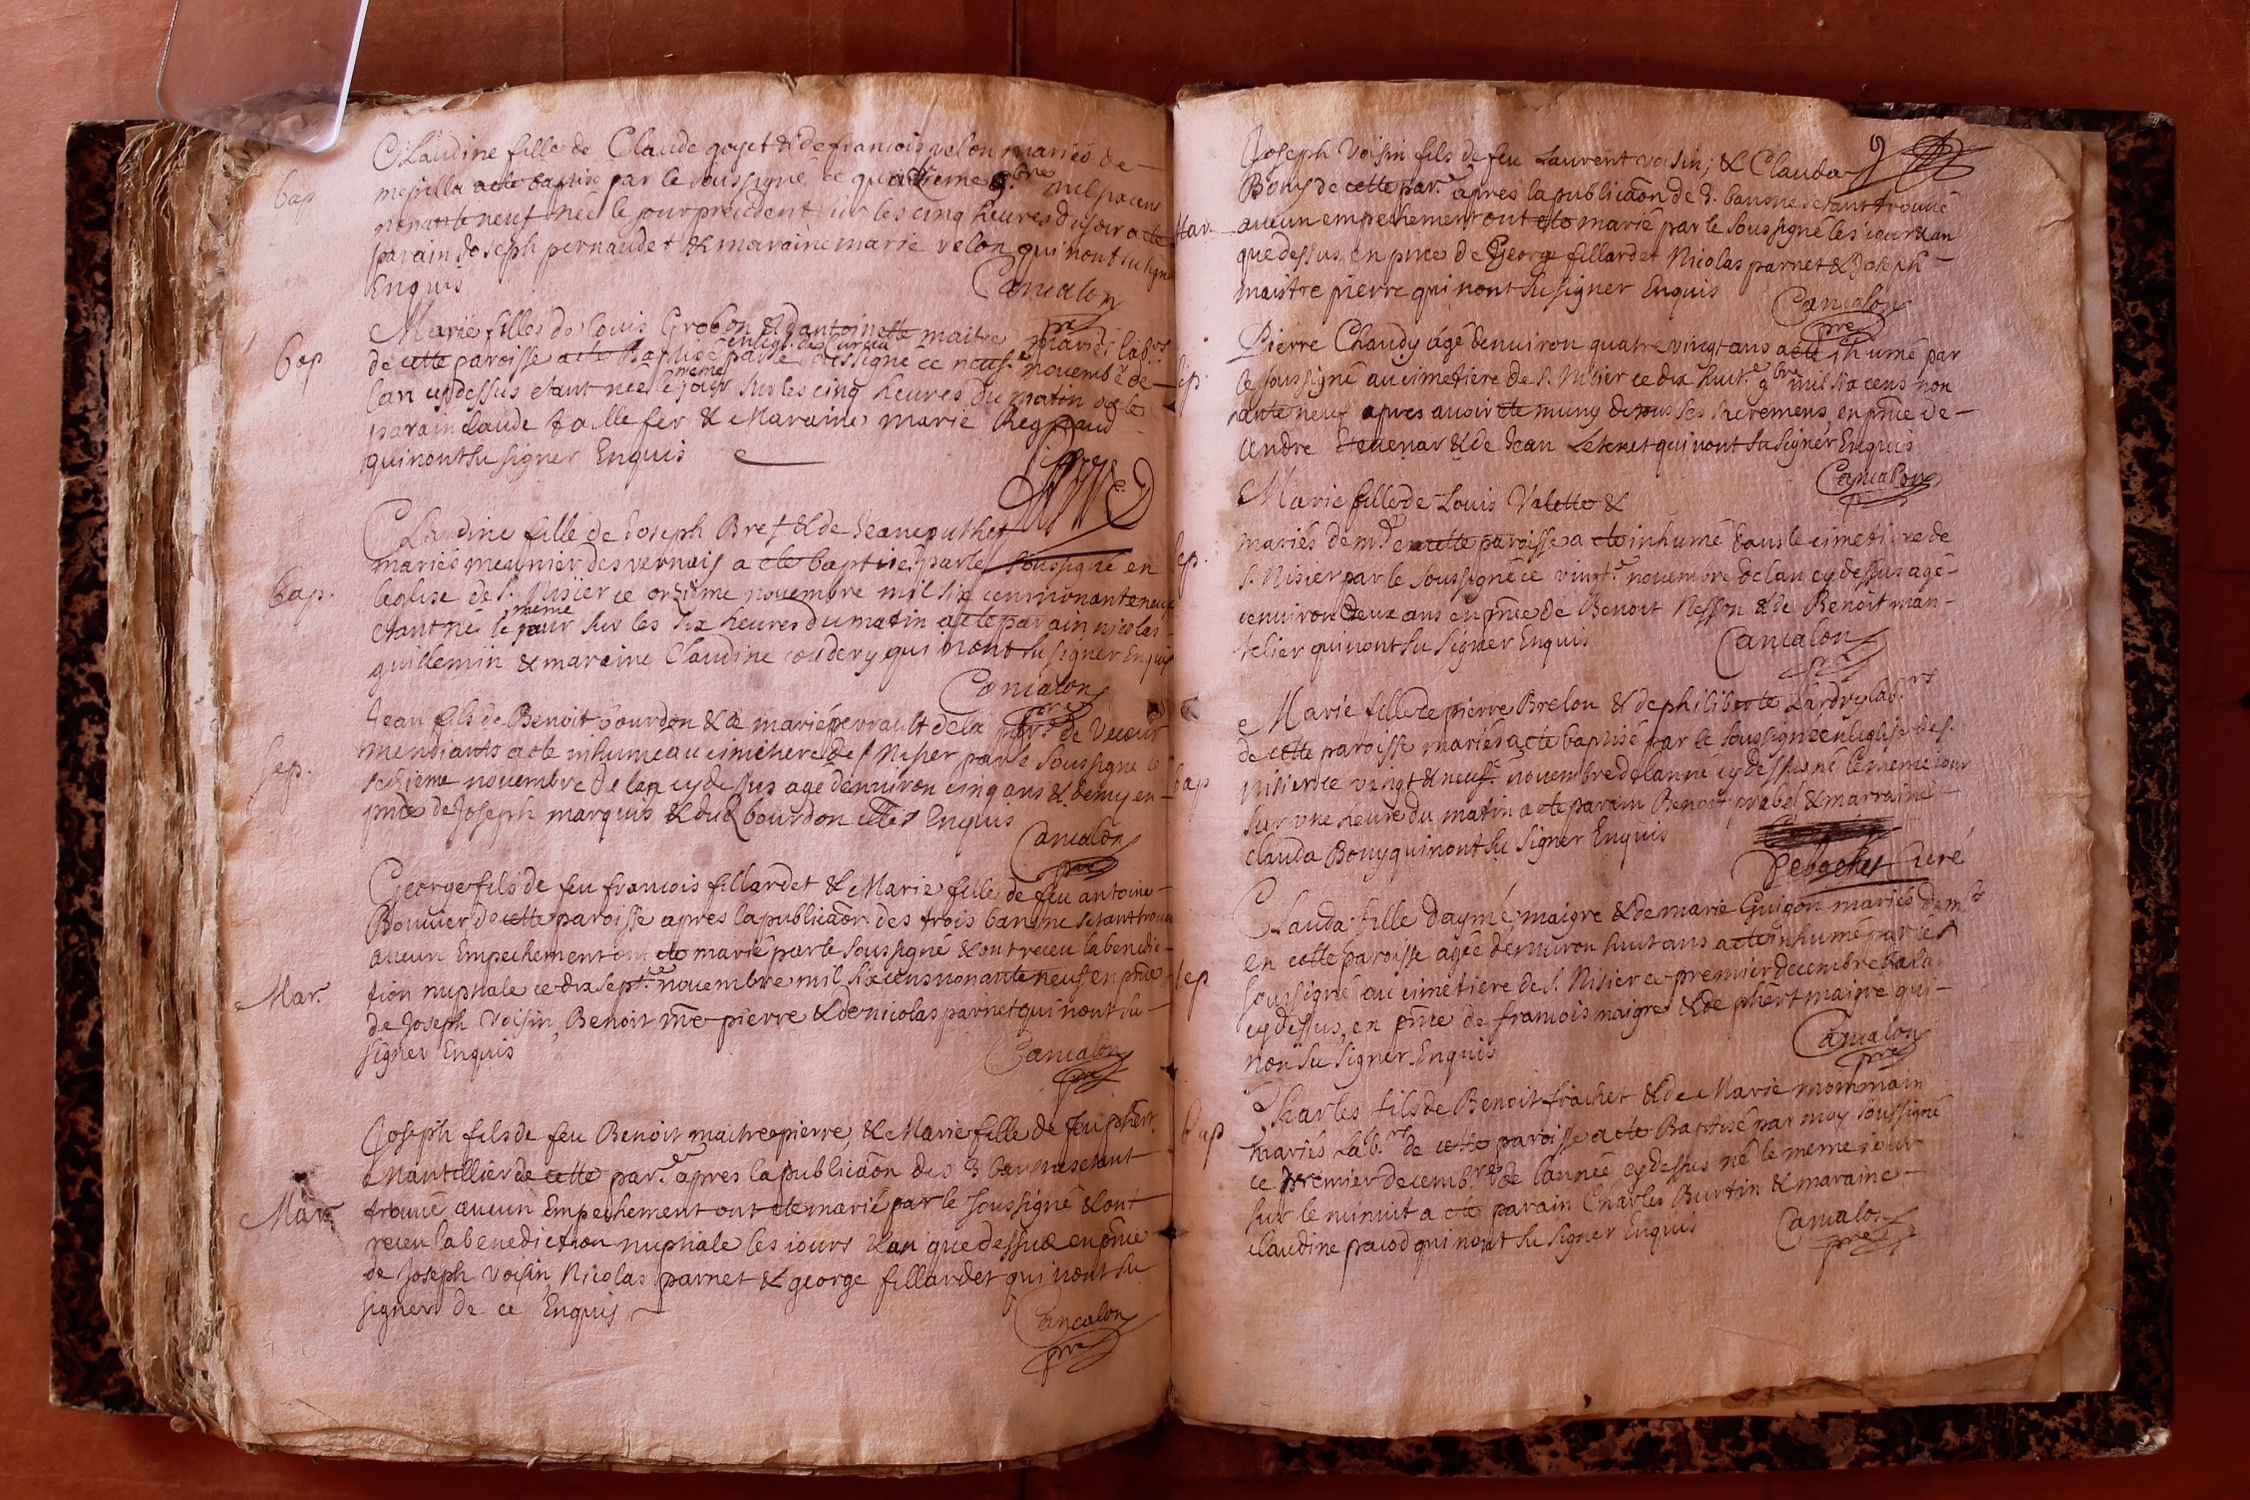 Claudine fille de Claude goyet & de francois velon mariés de
bap
mespilla a ete baptisé par le soussigné ce quatrieme 9.bre mil six cens
nonante neuf née le jour precedent sur les cinq heures du soir a ete
parain Joseph pernaudet & maraine marie velon qui nont su signe
Enquis
Cancalon
pre
Marie fille de louis Grobon & dantoinette maitre mariés lab.rs
bap
en legl. de Curciat
de cette paroisse a ete Baptisé par le soussigné ce neuf.e novemb.e de
meme
lan cydessus etant née le jour sur les cinq heures du matin a ete
parain claude taillefer & Maraine marie Regnaud
qui nont su signer Enquis
pre
Claudine fille de Joseph Bret & de Jeane puthet
mariés meunier des vernais a ete baptisé par le soussigné en
bap.
leglise de S. Nisier ce onzieme novembre mil six cens nonante neuf
meme
etant né le jour sur les six heures du matin a ete parain nicolas
guillemin & maraine Claudine coudery qui nont su signer Enquis
Cancalon
pre
Jean fils de Benoit bourdon & de marie perrault de la par.e de Vecour
mendiants a ete inhumé au cimetiere de S Nisier par le soussigné le
sep.
seizieme novembre de lan cydessus agé denviron cinq ans & demy en
pnce de Joseph marquis & dud bourdon Enquis
Cancalon
pre
George fils de feu francois fillardet & Marie fille de feu antoine
Bouvier de cette paroisse apres la publicaon des trois bans ne setant trouvé
aucun Empechement ont ete marié par le soussigné & ont receu la benedic-
Mar.
tion nuptiale ce dix sept.e novembre mil six cens nonante neuf en pnce
de Joseph voisin, Benoit me pierre & de nicolas parnet qui nont su
signer Enquis
Cancalon
pre
Joseph fils de feu Benoit maitrepierre & Marie fille de feu phert
Mantillier de cette par.e apres la publicaon des 3 bans ne setant
Mar.
trouvé aucun Empechement ont ete marié par le soussigné & ont
receu la benediction nuptiale les iours & an que dessus en pnce
de Joseph voisin Nicolas parnet & george fillardet qui nont su
signer de ce Enquis
Cancalon
pre
Joseph voisin fils de feu Laurent voisin, & Clauda
Bony de cette par.e apres la publicaon de 3. bans ne setant trouvé
Mar.
aucun empechement ont ete marié par le soussigné les iour & an
que dessus, en pnce de George fillardet Nicolas parnet & Joseph
maistre pierre qui nont su signer Enquis
Cancalon
pre
Pierre Chaudy agé denviron quatre vingt ans a ete ihumé par
sep.
le soussigné au cimetiere de S. Nisier ce dix huit.e 9bre mil six cens non
nante neuf apres avoir ete muny de tous ses sacremens, en pnce de
andre & de Jean qui nont su signer Enquis
Cancalon
Marie fille de Louis Valette &
mariés dem.t en cette paroisse a ete inhumé dans le cimetiere de
sep.
S. Nisier par le soussigné ce vingt.e novembre de lan cydessus agé
denviron deux ans en pnce de Benoit Nesson & de Benoit man-
telier qui nont su signer Enquis
Cancalon
Marie fille de pierre Brelon & de philiberte Lardry lab.rs
de cette paroisse mariés a ete baptisé par le soussigné en leglise de S.
bap
Nisier ce vingt & neuf.e novembre de lanné cydessus né le meme iour
sur une heure du matin a ete parain Benoit & marraine
clauda Bony qui nont su signer Enquis
Curé
Clauda fille daymé maigre & de marie Guigon mariés dem.t
en cette paroisse agée denviron huit ans a ete inhumé par le
sep
soussigné au cimetiere de S. Nisier ce premier decembre
cydessus, en pnce de francois maigre & de phert maigre qui
non su signer Enquis
Cancalon
pre
Charles fils de Benoit frachet & de Marie mommain
bap
mariés Lab.rs de cette paroisse a ete Baptisé par moy soussigné
ce premier decemb.re de lannée cydessus né le meme iour
sur le minuit a ete parain Charles Burtin & maraine
claudine pacod qui nont su signer Enquis
Cancalon
pre